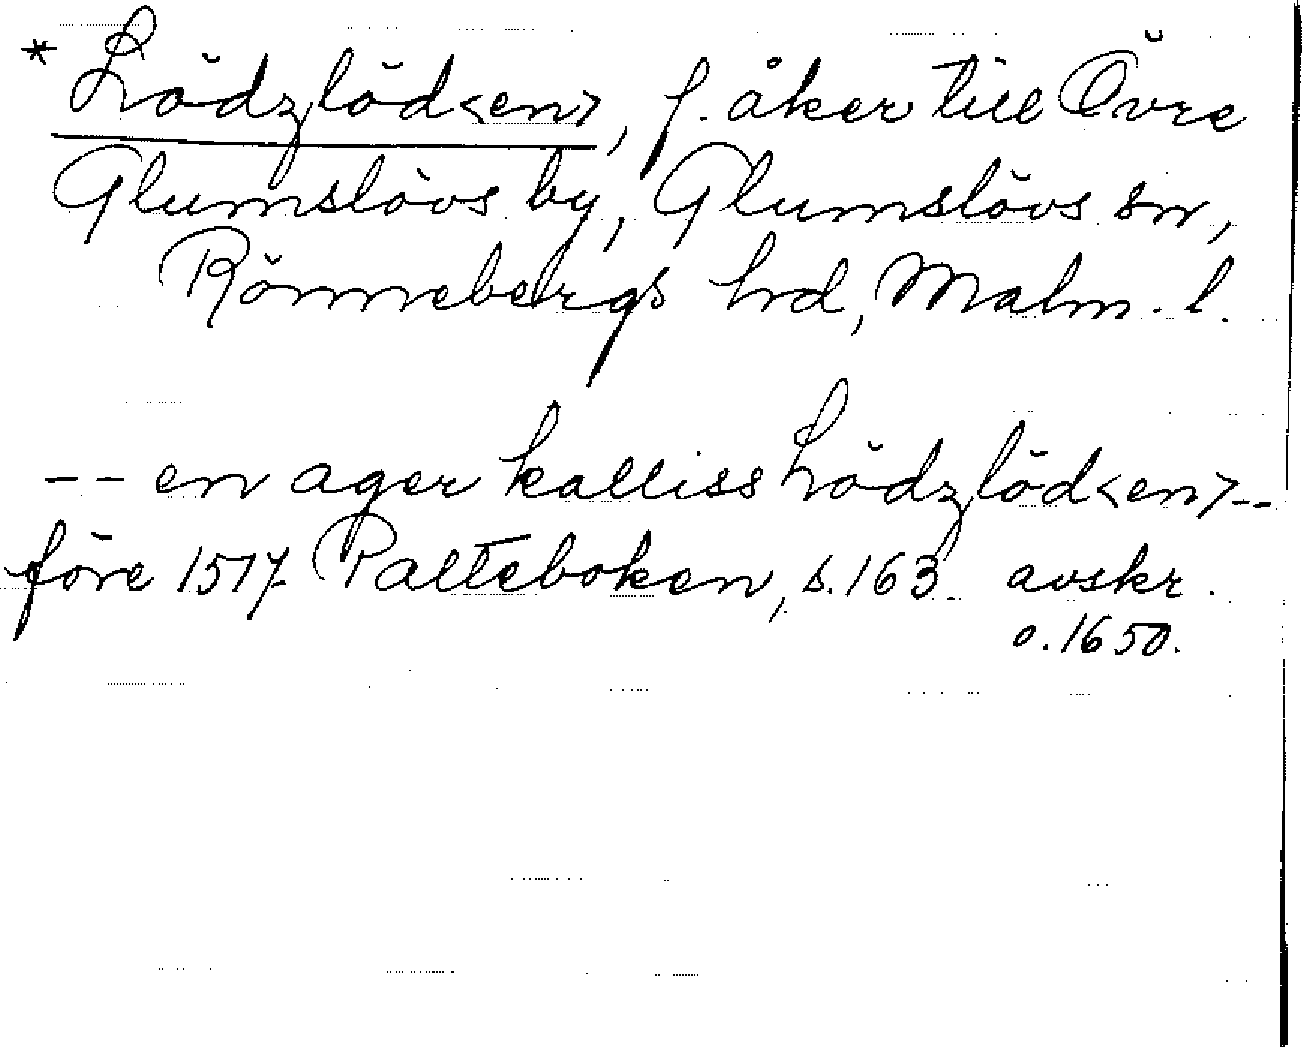 * Lödzlöd<en>, f. åker till Övre
Glumslövs by, Glumslövs sn,
Rönnebergs hd, Malm. l.
-- en ager kalliss Lödzlöd<en>--
före 1517. Palteboken, s. 163. avskr.
o. 1650.